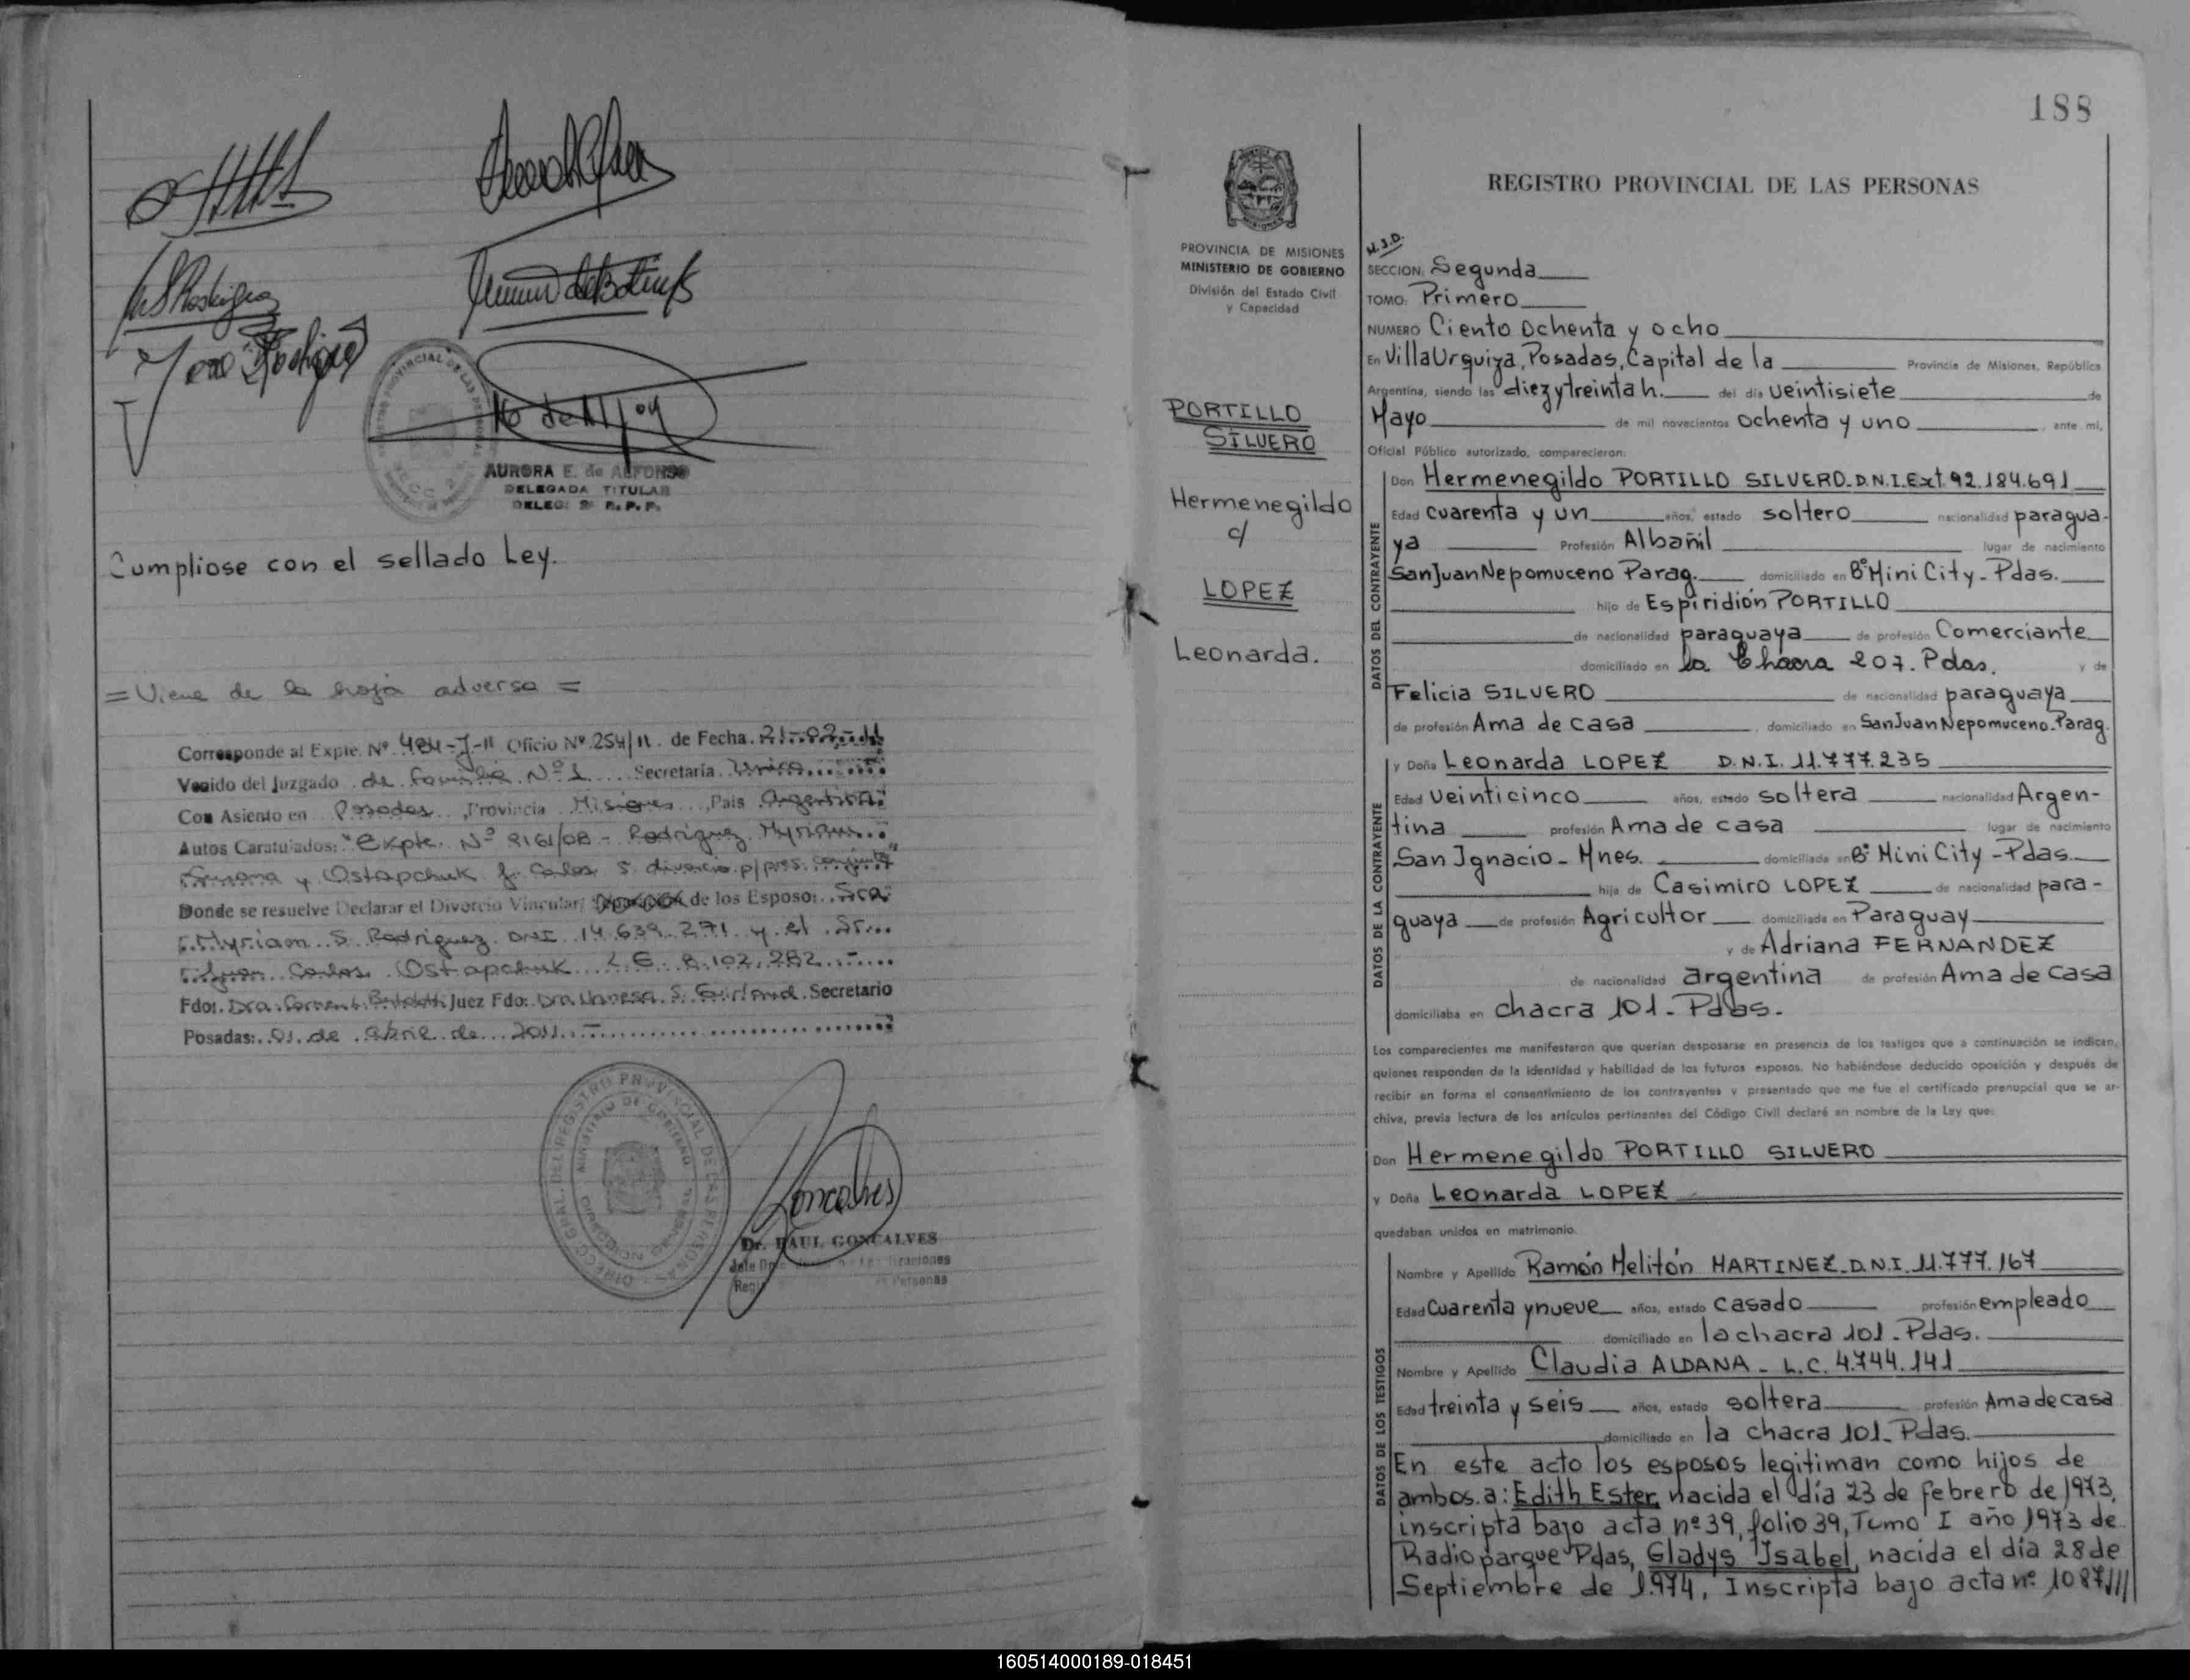 16 de 11/04
AURORA E. de ALFONSO
DELEGADA TITULAR
DELEG: 2ª R. P. P.
Cumpliose con el sellado Ley.
= Viene de la hoja adversa =
Corresponde al Expte. Nº 484-J-11 Oficio Nº 254/11. de Fecha. 21-02-11
Venido del Juzgado de familia Nº 1 Secretaría Unica
Con Asiento en Posadas, Provincia Misiones, País Argentina
Autos Caratulados: "Expte. Nº 8161/08 - Rodriguez Myriam
Susana y Ostapchuk J. Carlos S. divorcio p/pres. conjunta"
Donde se resuelve Declarar el Divorcio Vincular/ de los Esposo: Sra.
Myriam S. Rodriguez DNI 14.639.271 y el Sr.
Juan Carlos Ostapchuk L E 8.102.282
Fdo: Dra. Juez Fdo: Dra. Vanesa S. Secretario
Posadas: 01 de abril de 2011.
Dr. RAUL GONCALVES
188
REGISTRO PROVINCIAL DE LAS PERSONAS
PROVINCIA DE MISIONES
MINISTERIO DE GOBIERNO
División del Estado Civil
y Capacidad
PORTILLO
SILVERO
Hermenegildo
c/
LOPEZ
Leonarda.
M.J.D.
SECCION: Segunda
TOMO: Primero
NUMERO Ciento Ochenta y ocho
En Villa Urquiza, Posadas, Capital de la Provincia de Misiones, República
Argentina, siendo las diez y treinta h. del día veintisiete de
Mayo de mil novecientos ochenta y uno, ante mi,
Oficial Público autorizado, comparecieron:
DATOS DEL CONTRAYENTE
Don Hermenegildo PORTILLO SILVERO. D.N.I. Ext. 92.184.691
Edad cuarenta y un años, estado soltero nacionalidad paragua-
ya Profesión Albañil lugar de nacimiento
San Juan Nepomuceno Parag. domiciliado en Bº Mini City - Pdas.
hijo de Espiridión PORTILLO
de nacionalidad paraguaya de profesión Comerciante
domiciliado en la Chacra 207. Pdas. y de
Felicia SILVERO de nacionalidad paraguaya
de profesión Ama de casa, domiciliado en San Juan Nepomuceno. Parag.
DATOS DE LA CONTRAYENTE
y Doña Leonarda LOPEZ D.N.I. 11.777.235
Edad Veinticinco años, estado soltera nacionalidad Argen-
tina profesión Ama de casa lugar de nacimiento
San Ignacio - Mnes. domiciliada en Bº Mini City - Pdas.
hija de Casimiro LOPEZ de nacionalidad para-
guaya de profesión Agricultor domiciliada en Paraguay
y de Adriana FERNANDEZ
de nacionalidad argentina de profesión Ama de Casa
domiciliaba en chacra 101 - Pdas.
Los comparecientes me manifestaron que querían desposarse en presencia de los testigos que a continuación se indican,
quienes responden de la identidad y habilidad de los futuros esposos. No habiéndose deducido oposición y después de
recibir en forma el consentimiento de los contrayentes y presentado que me fue el certificado prenupcial que se ar-
chiva, previa lectura de los artículos pertinentes del Código Civil declaré en nombre de la Ley que:
Don Hermenegildo PORTILLO SILVERO
y Doña Leonarda LOPEZ
quedaban unidos en matrimonio.
DATOS DE LOS TESTIGOS
Nombre y Apellido Ramón Melitón MARTINEZ. D.N.I. 11.777.167
Edad Cuarenta y nueve años, estado casado profesión empleado
domiciliado en la chacra 101 - Pdas.
Nombre y Apellido Claudia ALDANA - L.C. 4.744.141
Edad treinta y seis años, estado soltera profesión Ama de casa
domiciliado en la chacra 101 - Pdas.
En este acto los esposos legitiman como hijos de
ambos. a: Edith Ester, nacida el día 23 de febrero de 1973,
inscripta bajo acta nº 39, folio 39, Tomo I año 1973 de
Radioparque Pdas, Gladys Isabel, nacida el día 28 de
Septiembre de 1.974, Inscripta bajo acta nº 1087///
160514000189-018451